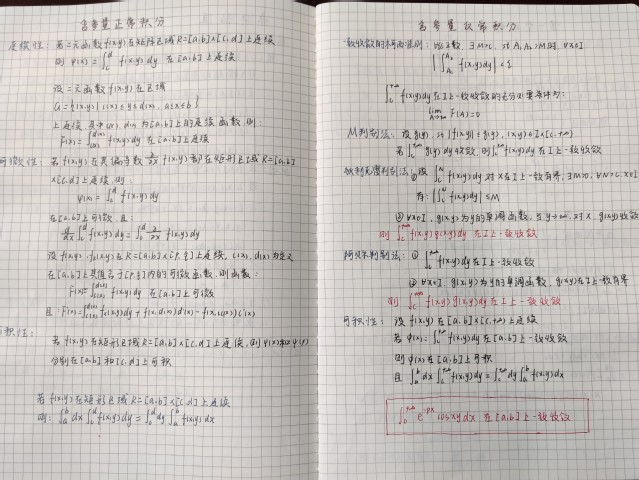 含参量正常积分
连续性：若二元函数f(x,y)在矩形区域R=[a,b]×[c,d]上连续
则 φ(x)=∫_c^d f(x,y)dy 在[a,b]上连续
设二元函数f(x,y)在区域
G={(x,y)|c(x)≤y≤d(x), a≤x≤b}
上连续,其中c(x),d(x)为[a,b]上的连续函数,则:
F(x)=∫_{c(x)}^{d(x)} f(x,y)dy 在[a,b]上连续
可微性：若f(x,y)与其偏导数 ∂/∂x f(x,y)都在矩形区域R=[a,b]
×[c,d]上连续,则:
φ(x)=∫_c^d f(x,y)dy
在[a,b]上可微,且:
d/dx∫_c^d f(x,y)dy=∫_c^d ∂/∂x f(x,y)dy
设f(x,y),f_x(x,y)在R=[a,b]×[p,q]上连续,c(x),d(x)为定义
在[a,b]上其值含于[p,q]内的可微函数,则函数:
F(x)=∫_{c(x)}^{d(x)} f(x,y)dy 在[a,b]上可微
且:F'(x)=∫_{c(x)}^{d(x)} f_x(x,y)dy+f(x,d(x))d'(x)-f(x,c(x))c'(x)
可积性：
若f(x,y)在矩形区域R=[a,b]×[c,d]上连续,则φ(x)和ψ(y)
分别在[a,b]和[c,d]上可积
若f(x,y)在矩形区域R=[a,b]×[c,d]上连续
则: ∫_a^b dx∫_c^d f(x,y)dy=∫_c^d dy∫_a^b f(x,y)dx
含参量反常积分
一致收敛的柯西准则：∀ε>0, ∃M>c, 对A₁,A₂>M时,∀x∈I
|∫_{A₁}^{A₂} f(x,y)dy|<ε
∫_c^{+∞} f(x,y)dy在I上一致收敛的充分必要条件为:
lim_{A→+∞} F(A)=0
M判别法：设g(y),对|f(x,y)|≤g(y),(x,y)∈I×[c,+∞)
若∫_c^{+∞} g(y)dy收敛,则∫_c^{+∞} f(x,y)dy在I上一致收敛
狄利克雷判别法:①设∫_c^N f(x,y)dy对x在I上一致有界,∃M>0,∀N>c,x∈I
有:|∫_c^N f(x,y)dy|≤M
②∀x∈I,g(x,y)为y的单调函数,在y→+∞,对x,g(x,y)收敛
则∫_c^{+∞} f(x,y)g(x,y)dy在I上一致收敛
阿贝尔判别法:①∫_c^{+∞} f(x,y)dy在I上一致收敛
②∀x∈I,g(x,y)为y的单调函数,g(x,y)在I上一致有界
则∫_c^{+∞} f(x,y)g(x,y)dy在I上一致收敛
可积性：设f(x,y)在[a,b]×[c,+∞)上连续
若φ(x)=∫_c^{+∞} f(x,y)dy在[a,b]上一致收敛
则φ(x)在[a,b]上可积
且∫_a^b dx∫_c^{+∞} f(x,y)dy=∫_c^{+∞} dy∫_a^b f(x,y)dx
∫_0^{+∞} e^{-px}cosxydx 在[a,b]上一致收敛